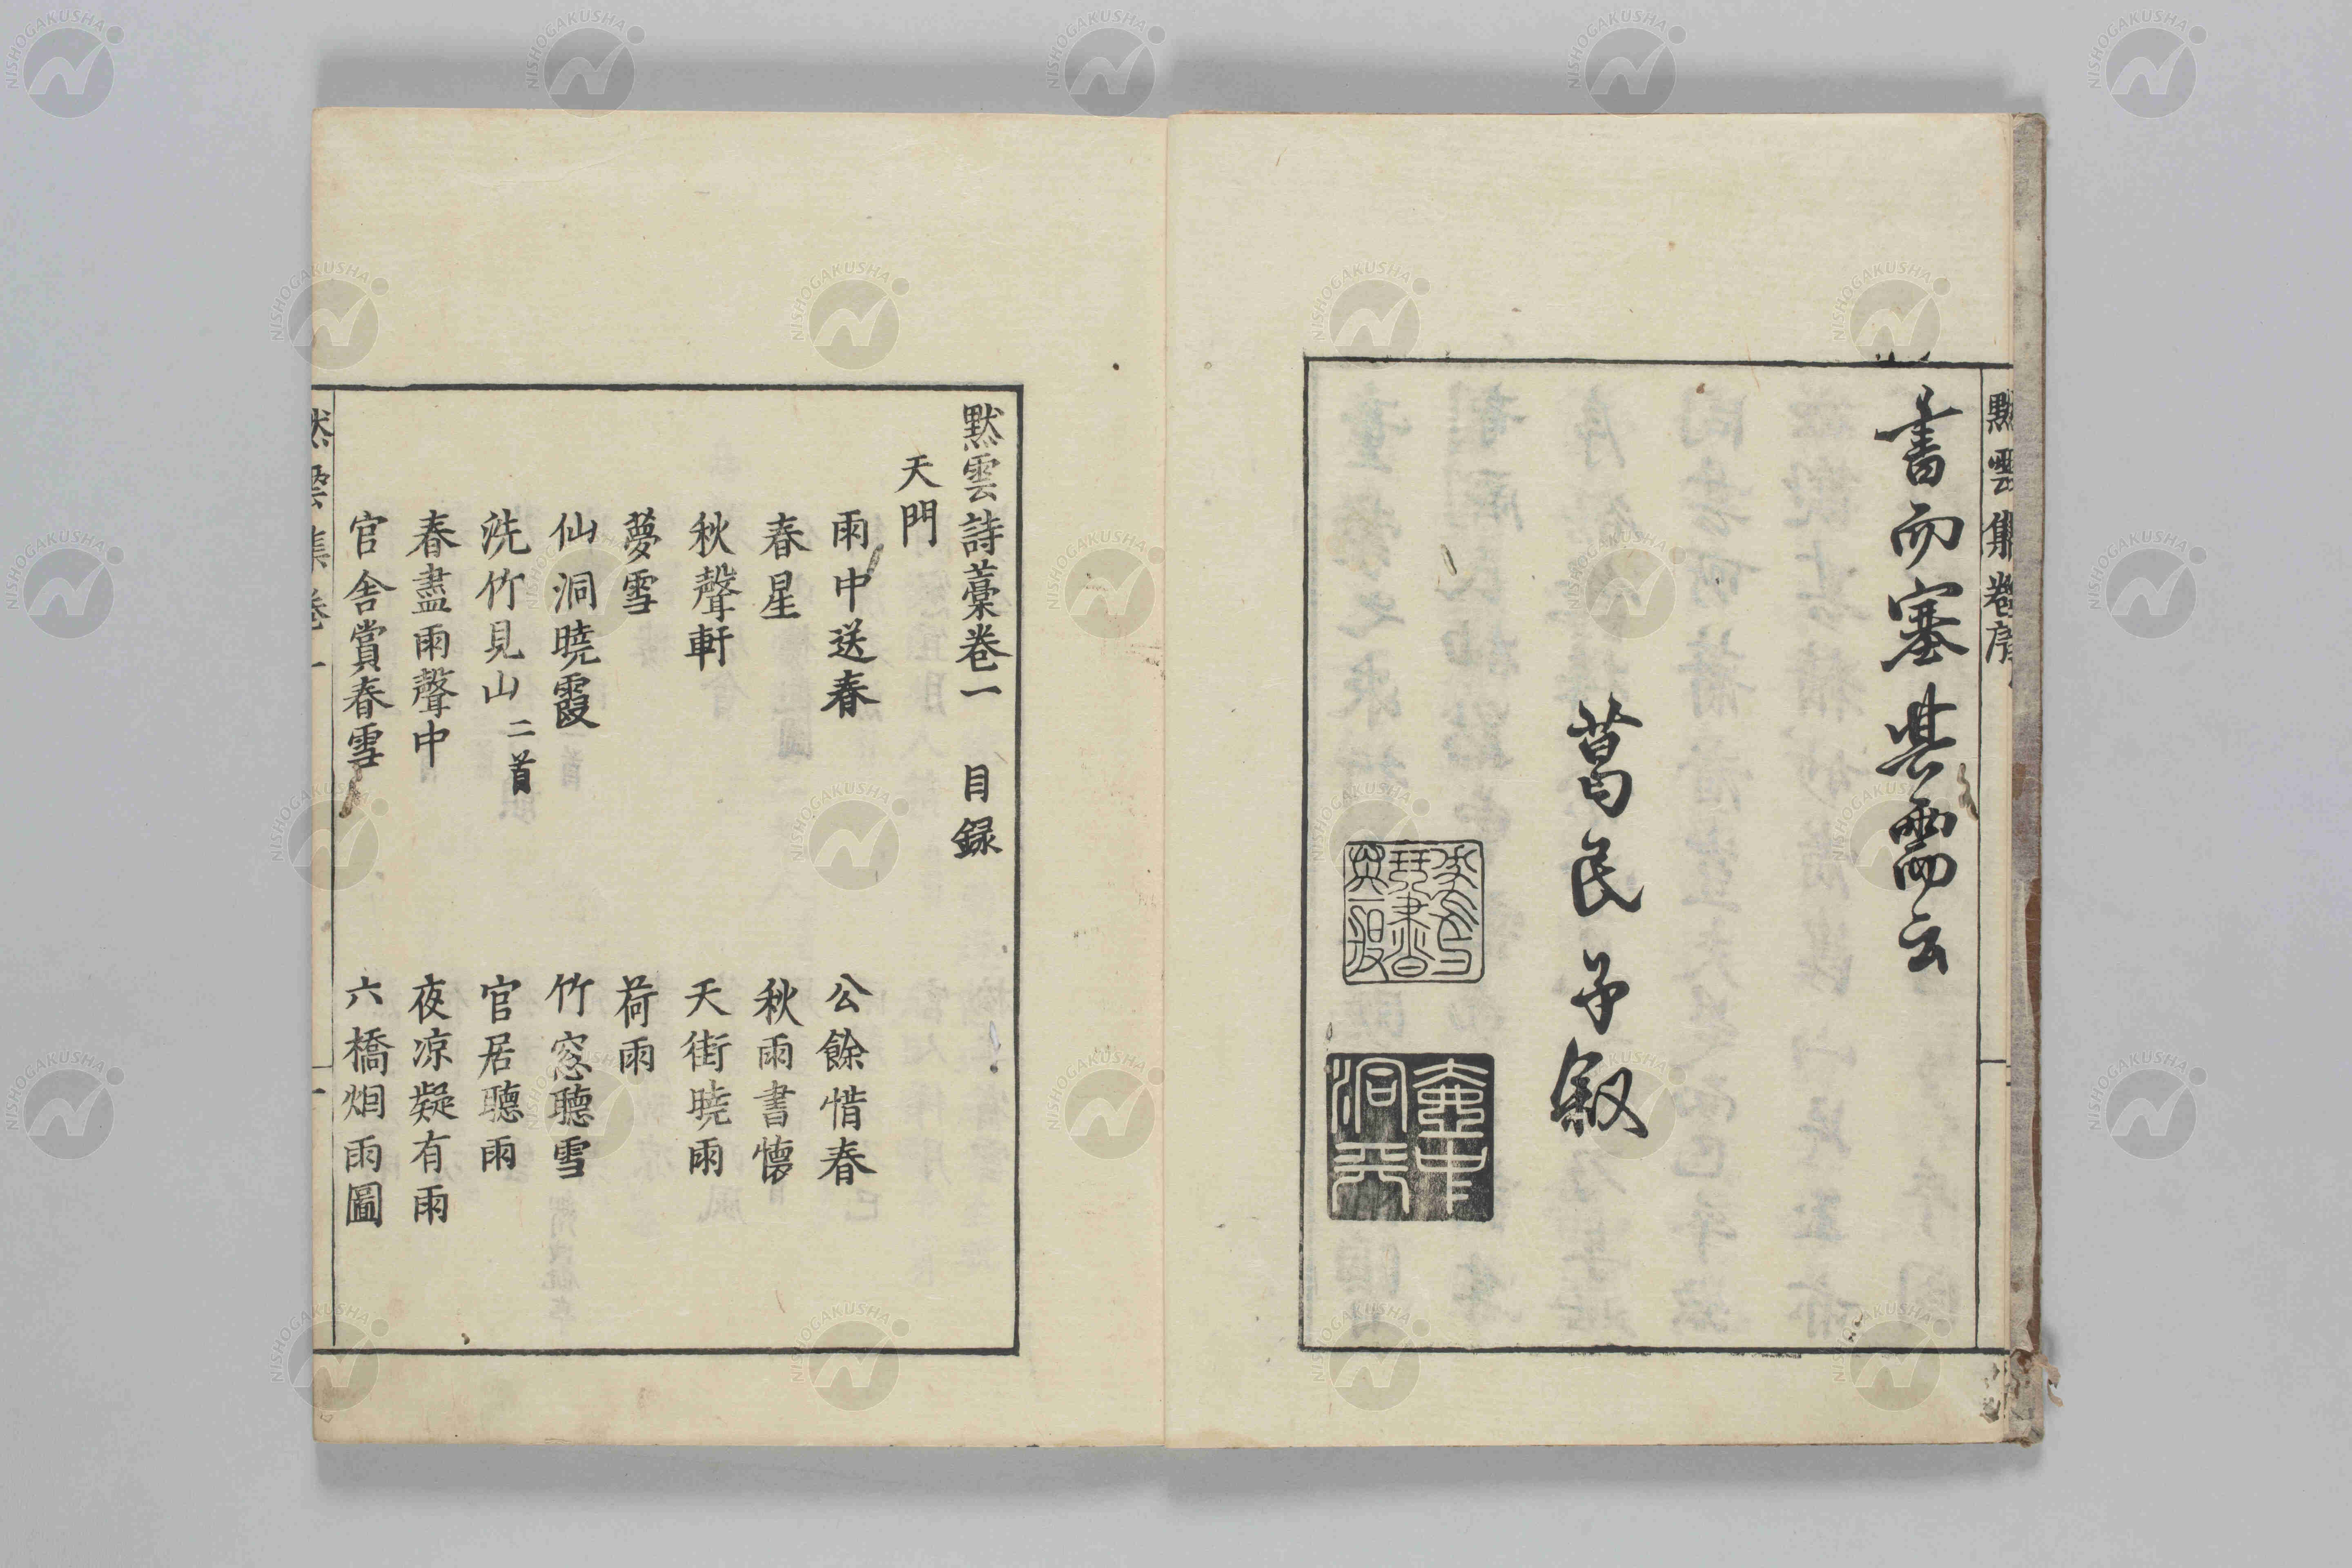 黙雲集卷序
書而塞其需云
葛民予叙
黙雲詩藁卷一　目録
天門
雨中送春　公餘惜春
春星　秋雨書懷
秋聲軒　天街曉雨
夢雪　荷雨
仙洞曉霞　竹窓聽雪
洗竹見山二首　官居聽雨
春盡雨聲中　夜凉疑有雨
官舎賞春雪　六橋烟雨圖
黙雲集卷一
NISHOGAKUSHA